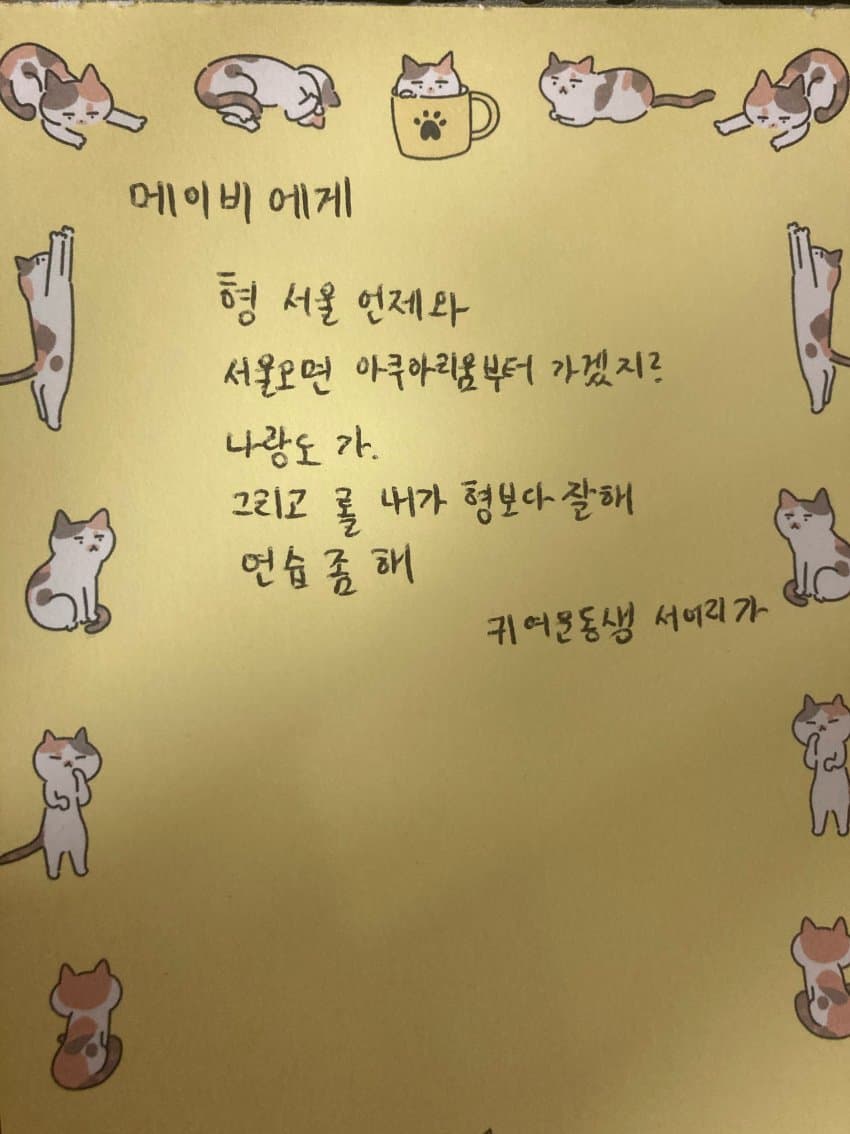 메이비 에게
형 서울 언제와
서울오면 아쿠아리움부터 가겠지?
나랑도 가.
그리고 롤 내가 형보다 잘해
연습 좀 해
귀여운동생 서어리가